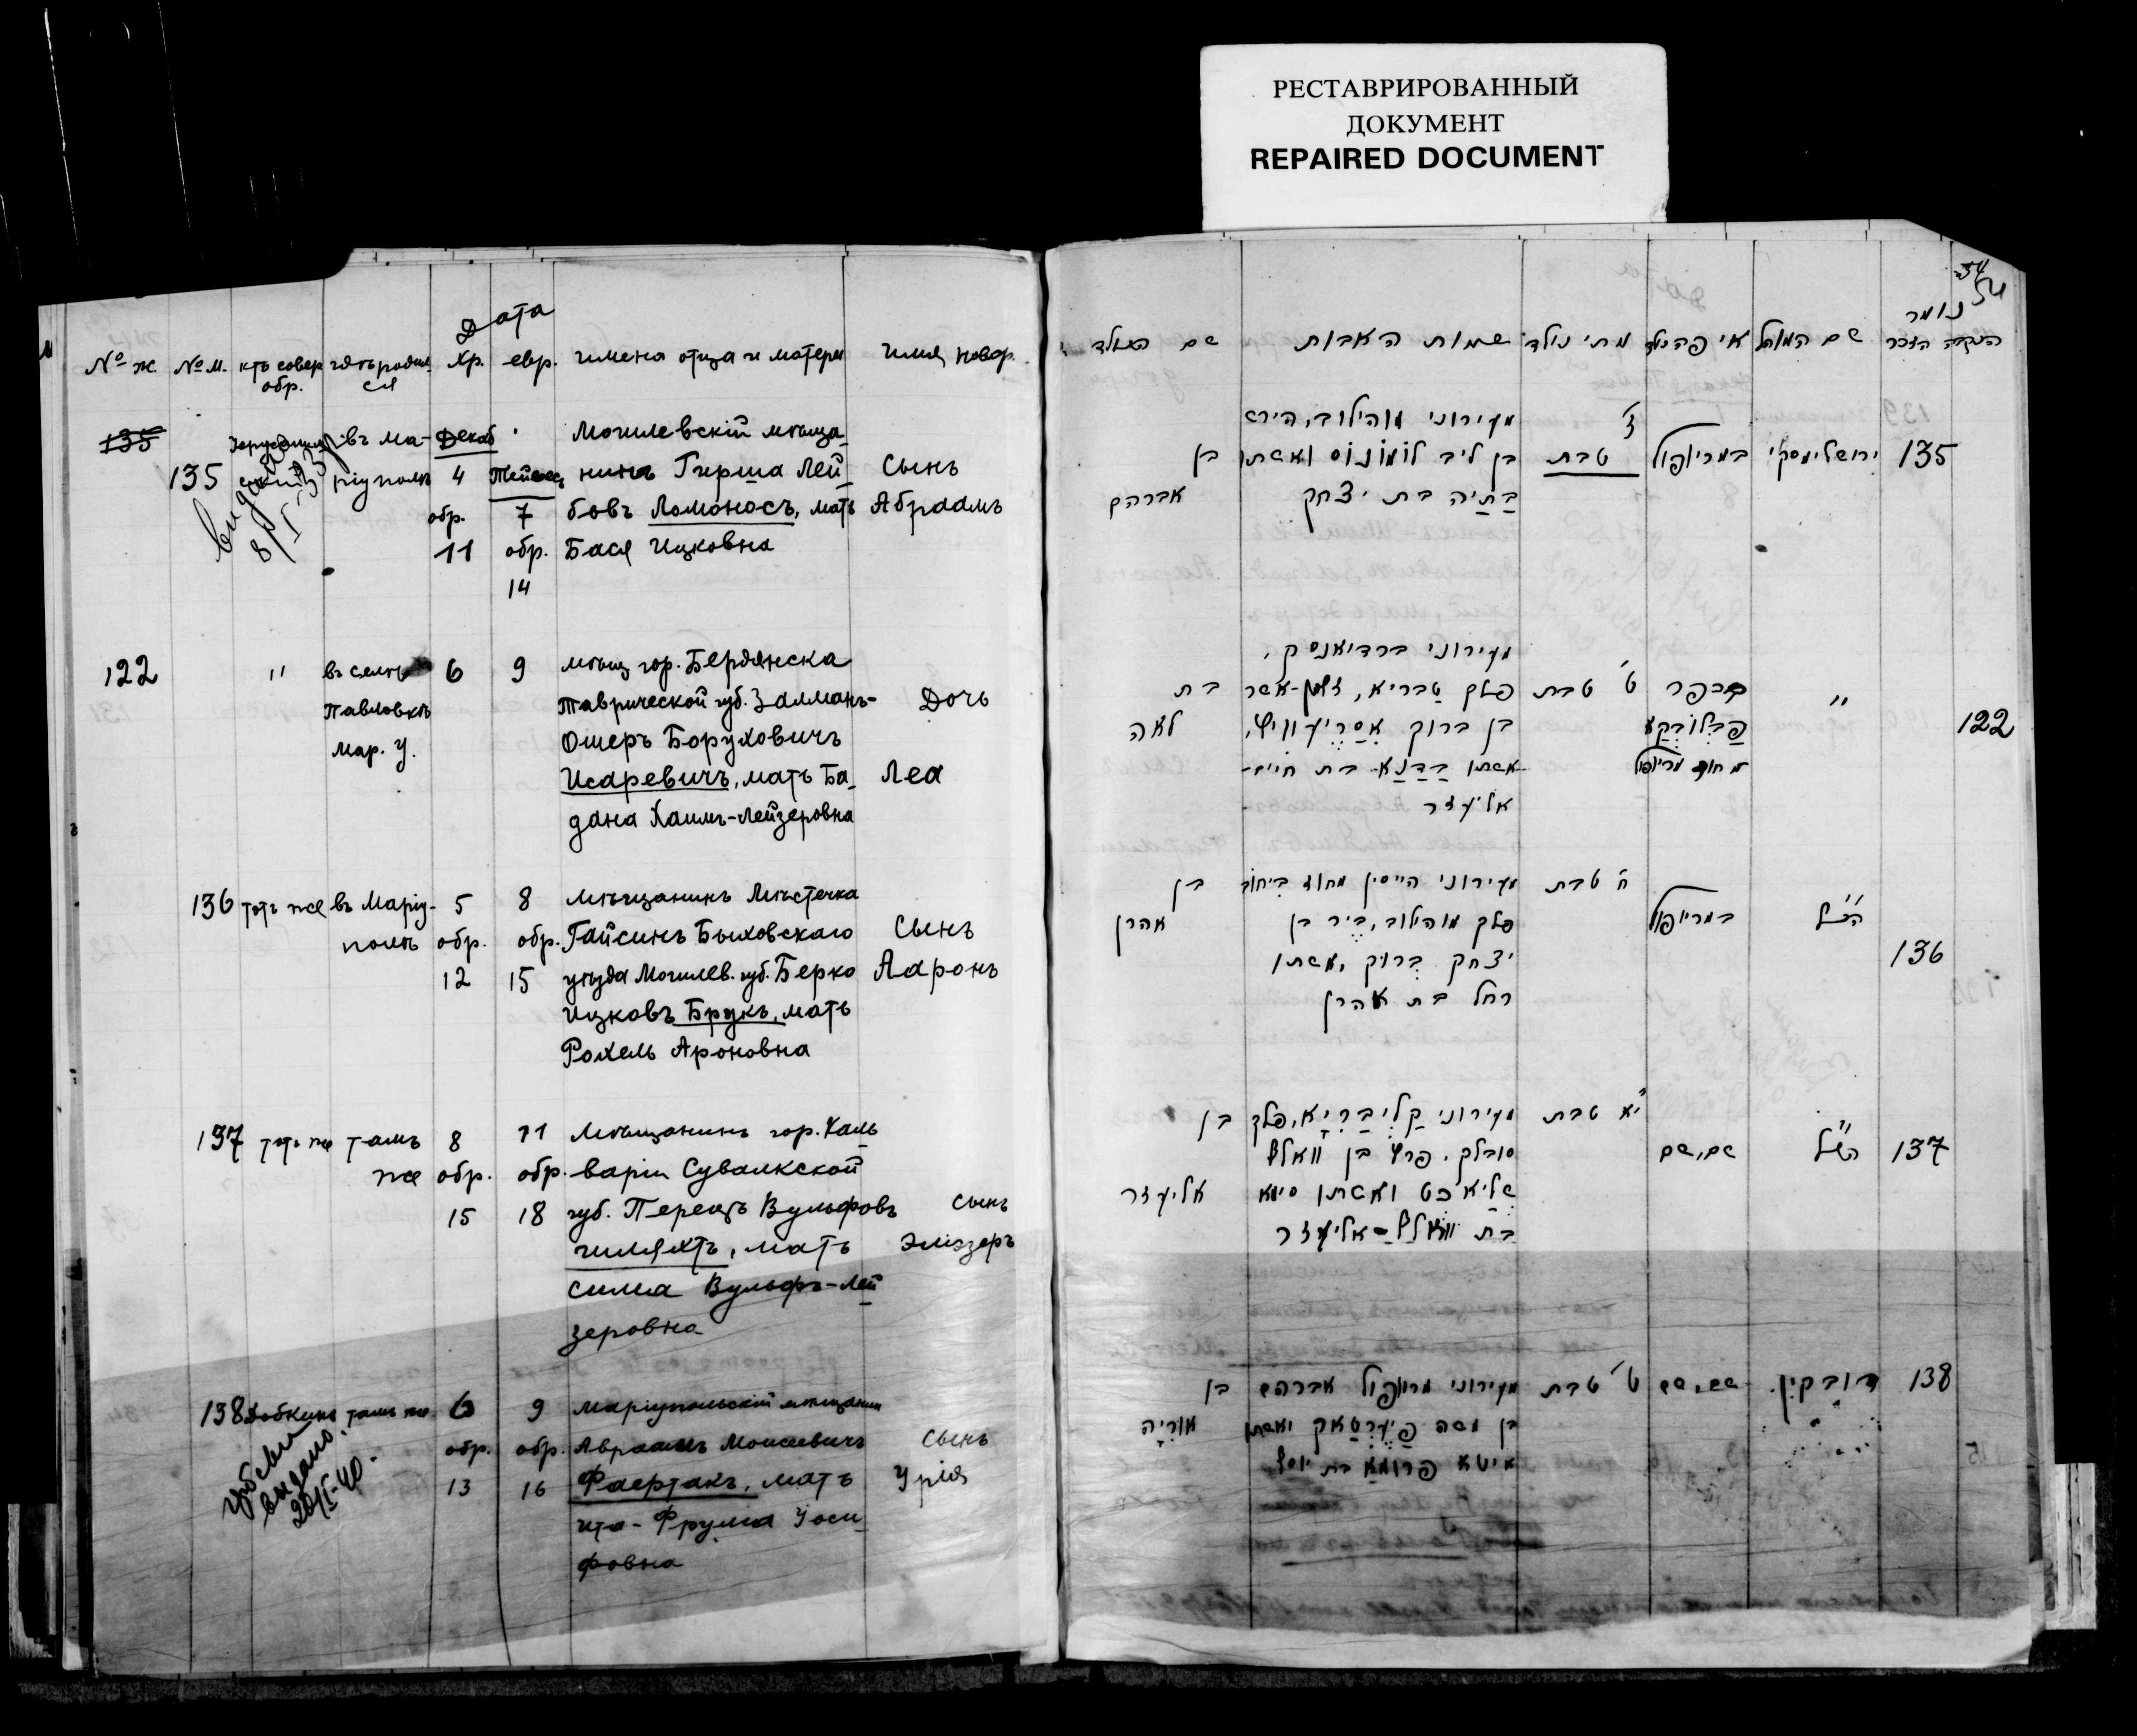 РЕСТАВРИРОВАННЫЙ
ДОКУМЕНТ
REPAIRED DOCUMENT
Дата
№ ж. № м. кто совер. обр. гдѣ родил ся Хр. евр. имена отца и матери имя новор.
135
135 въ Ма-
ріуполѣ
Декаб
4
обр.
11
Тейвес
7
обр.
14
Могилевскій мѣща-
нинъ Гирша Лей-
бовъ Ломоносъ, мать
Бася Ицковна
Сынъ
Абраамъ
122 " въ селѣ
Павловкѣ
Мар. у.
6 9
мѣщ гор. Бердянска
Таврической губ. Залманъ-
Ошеръ Боруховичъ
Исаревичъ, мать Ба-
дана Хаимъ-Лейзеровна
Дочь
Леа
136 тотъ же въ Маріу-
полѣ
5
обр.
12
8
обр.
15
мѣщанинъ Мѣстечка
Гайсинъ Быховскаго
уѣзда Могилев. губ. Берко
Ицковъ Брукъ, мать
Рохель Ароновна
Сынъ
Ааронъ
137 тотъ же тамъ
же
8
обр.
15
11
обр.
18
Мѣщанинъ гор. Каль-
варіи Сувалкской
губ. Перецъ Вульфовъ
Шляхтъ, мать
Сима Вульфъ-Лей-
зеровна
Сынъ
Эліэзеръ
138 Добкинъ тамъ же
выдано
6
обр.
13
9
обр.
16
Маріупольскій мѣщанин
Авраамъ Моисеевичъ
Фаертакъ, мать
Ита-Фрума Иоси-
фовна
Сынъ
Урія
54
נומר
הנקבה הזכר שם המוהל אי פה נולד מתי נולד שמות האבות שם הנולד
135 ירושלימסקי במריופול
ז'
טבת
מעירוני מוהילוב, הירש
בן ליב לומונוס ואשתו
בתיה בת יצחק
בן
אברהם
122 " בכפר
פבלובקע
מחוז מריופול
ט' טבת
מעירוני ברדיאנסק,
פלך טבריא, זלמן-אשר
בן ברוך אסרעוויץ,
אשתו בדנא בת חיים-
אליעזר
בת
לאה
136 הנ"ל במריופול ח' טבת
מעירוני הייסין מחוז ביחוב
פלך מוהילוב, בער בן
יצחק ברוק, אשתו
רחל בת אהרן
בן
אהרן
137 הנ"ל שם, שם י"א טבת
מעירוני קליבריא, פלך
סובלק, פרץ בן וואלף
שליאכט ואשתו סימא
בת וואלף-אליעזר
בן
אליעזר
138 דובקין. שם, שם ט' טבת
מעירוני מריופול אברהם
בן משה פיערטאק ואשתו
איטא פרומא בת יוסף
בן
אוריה